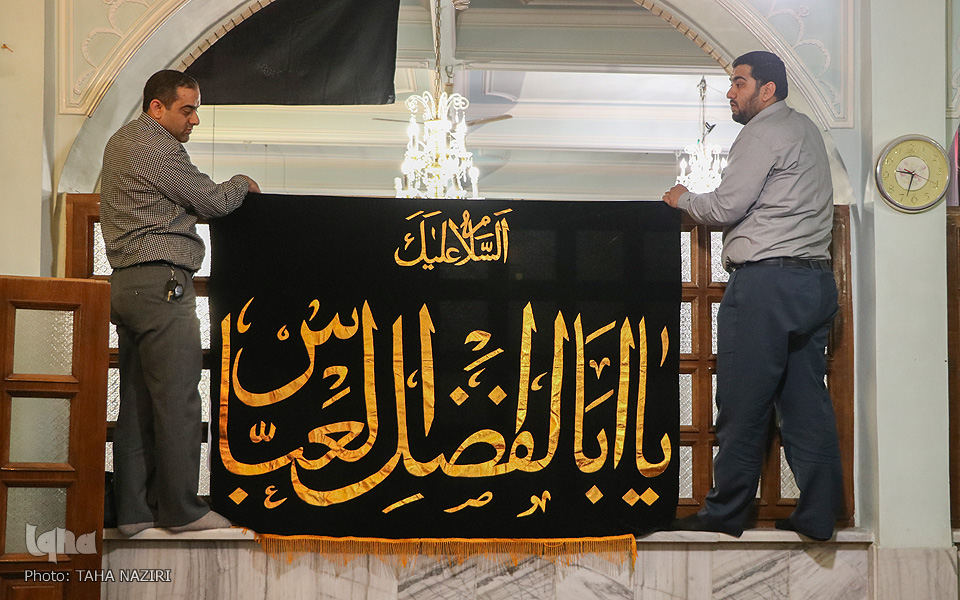 اَلسَّلامُ عَلَیْكَ
یا اَبَا الْفَضْلِ الْعَبّاس
iqna
Photo: TAHA NAZIRI